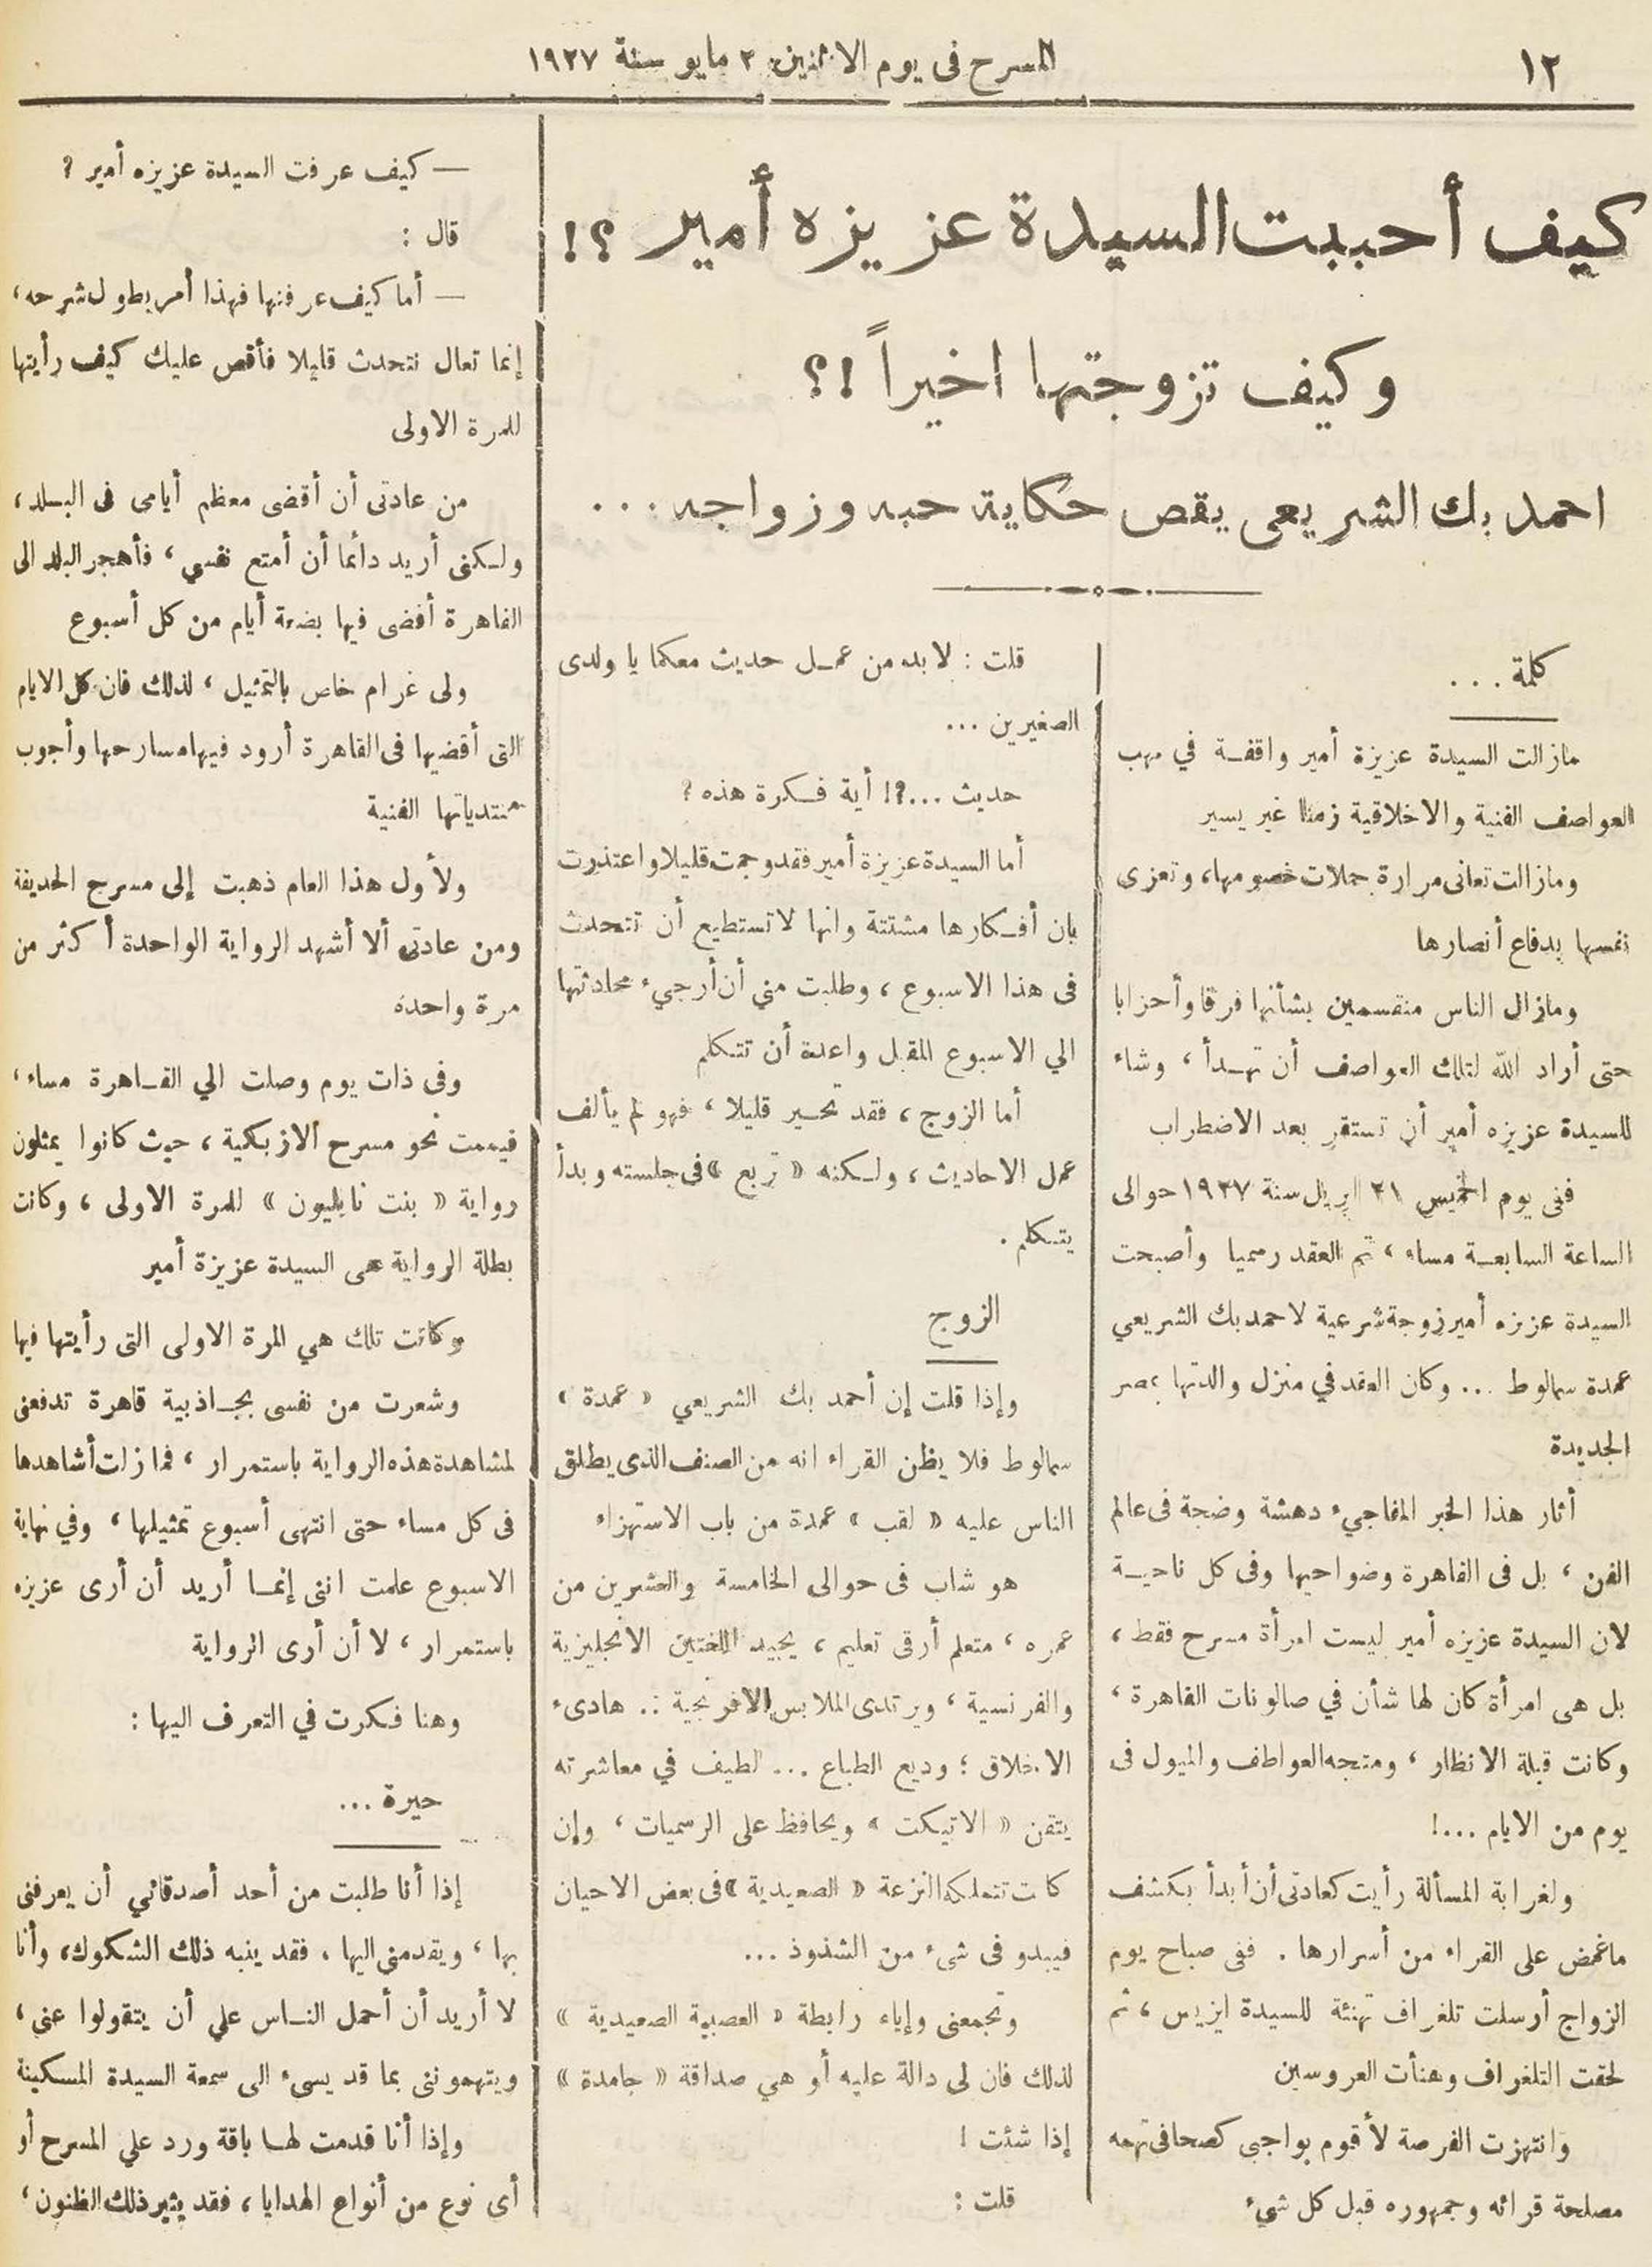 ١٢
المسرح فى يوم الاثنين ٢ مايو سنة ١٩٢٧
كيف أحببت السيدة عزيزه أمير ؟!
وكيف تزوجتها اخيراً !؟
احمد بك الشريعى يقص حكاية حبه وزواجه ...
كلمة ...
مازالت السيدة عزيزة أمير واقفة في مهب
العواصف الفنية والاخلاقية زمنا غير يسير
ومازالت تعانى مرارة حملات خصومها، وتعزى
نفسها بدفاع أنصارها
ومازال الناس منقسمين بشأنها فرقا وأحزابا
حتى أراد الله لتلك العواصف أن تهدأ ، وشاء
للسيدة عزيزه أمير أن تستقر بعد الاضطراب
ففى يوم الخميس ٢١ ابريل سنة ١٩٢٧ حوالى
الساعة السابعة مساء ، تم العقد رسميا وأصبحت
السيدة عزيزه أمير زوجة شرعية لاحمد بك الشريعي
عمدة سمالوط ... وكان العقد في منزل والدتها بمصر
الجديدة
أثار هذا الخبر المفاجيء دهشة وضجة فى عالم
الفن ، بل فى القاهرة وضواحيها وفى كل ناحية
لان السيدة عزيزه أمير ليست امرأة مسرح فقط ،
بل هى امرأة كان لها شأن في صالونات القاهرة ،
وكانت قبلة الانظار ، ومتجه العواطف والميول فى
يوم من الايام ...!
ولغرابة المسألة رأيت كعادتى أن أبدأ بكشف
ماغمض على القراء من أسرارها . ففى صباح يوم
الزواج أرسلت تلغراف تهنئة للسيدة ايزيس ، ثم
لحقت التلغراف وهنأت العروسين
وانتهزت الفرصة لأقوم بواجبى كصحافى تهمه
مصلحة قرائه وجمهوره قبل كل شيء
قلت : لا بد من عمل حديث معكما يا ولدى
الصغيرين ...
حديث ...؟! أية فكرة هذه ؟
أما السيدة عزيزة أمير فقد وجمت قليلا واعتذرت
بان أفكارها مشتتة وانها لا تستطيع أن تتحدث
فى هذا الاسبوع ، وطلبت مني أن أرجيء محادثتها
الي الاسبوع المقبل واعدة أن تتكلم
أما الزوج ، فقد تحير قليلا ، فهو لم يألف
عمل الاحاديث ، ولكنه « تربع » فى جلسته وبدأ
يتكلم .
الزوج
وإذا قلت إن أحمد بك الشريعي « عمدة »
سمالوط فلا يظن القراء انه من الصنف الذى يطلق
الناس عليه « لقب » عمدة من باب الاستهزاء
هو شاب فى حوالى الخامسة والعشرين من
عمره ، متعلم أرقى تعليم ، يجيد اللغتين الانجليزية
والفرنسية ، ويرتدى الملابس الافرنجية .. هادىء
الاخلاق ؛ وديع الطباع ... لطيف في معاشرته
يتقن « الاتيكت » ويحافظ على الرسميات ، وإن
كانت تتملكه النزعة « الصعيدية » فى بعض الاحيان
فيبدو فى شىء من الشذوذ ...
وتجمعنى وإياه رابطة « العصبية الصعيدية »
لذلك فان لى دالة عليه أو هي صداقة « جامدة »
إذا شئت !
قلت :
— كيف عرفت السيدة عزيزه أمير ؟
قال :
— أما كيف عرفتها فهذا أمر يطول شرحه ،
إنما تعال نتحدث قليلا فأقص عليك كيف رأيتها
للمرة الاولى
من عادتى أن أقضى معظم أيامى فى البلد ،
ولكنى أريد دائما أن أمتع نفسي ، فأهجر البلد الى
القاهرة أقضى فيها بضعة أيام من كل أسبوع
ولى غرام خاص بالتمثيل ، لذلك فان كل الايام
التى أقضيها فى القاهرة أرود فيها مسارحها وأجوب
منتدياتها الفنية
ولأول هذا العام ذهبت إلى مسرح الحديقة
ومن عادتى ألا أشهد الرواية الواحدة أكثر من
مرة واحدة
وفى ذات يوم وصلت الي القاهرة مساء ،
فيممت نحو مسرح الازبكية ، حيث كانوا يمثلون
رواية « بنت نابليون » للمرة الاولى ، وكانت
بطلة الرواية هى السيدة عزيزة أمير
وكانت تلك هي المرة الاولى التى رأيتها فيها
وشعرت من نفسى بجاذبية قاهرة تدفعنى
لمشاهدة هذه الرواية باستمرار ، فما زلت أشاهدها
فى كل مساء حتى انتهى أسبوع تمثيلها ، وفي نهاية
الاسبوع علمت اننى إنما أريد أن أرى عزيزه
باستمرار ، لا أن أرى الرواية
وهنا فكرت في التعرف اليها :
حيرة ...
إذا أنا طلبت من أحد أصدقائي أن يعرفنى
بها ، ويقدمنى اليها ، فقد ينبه ذلك الشكوك، وأنا
لا أريد أن أحمل الناس علي أن يتقولوا عنى ،
ويتهموننى بما قد يسىء الى سمعة السيدة المسكينة
وإذا أنا قدمت لها باقة ورد علي المسرح أو
أى نوع من أنواع الهدايا ، فقد يثير ذلك الظنون ،